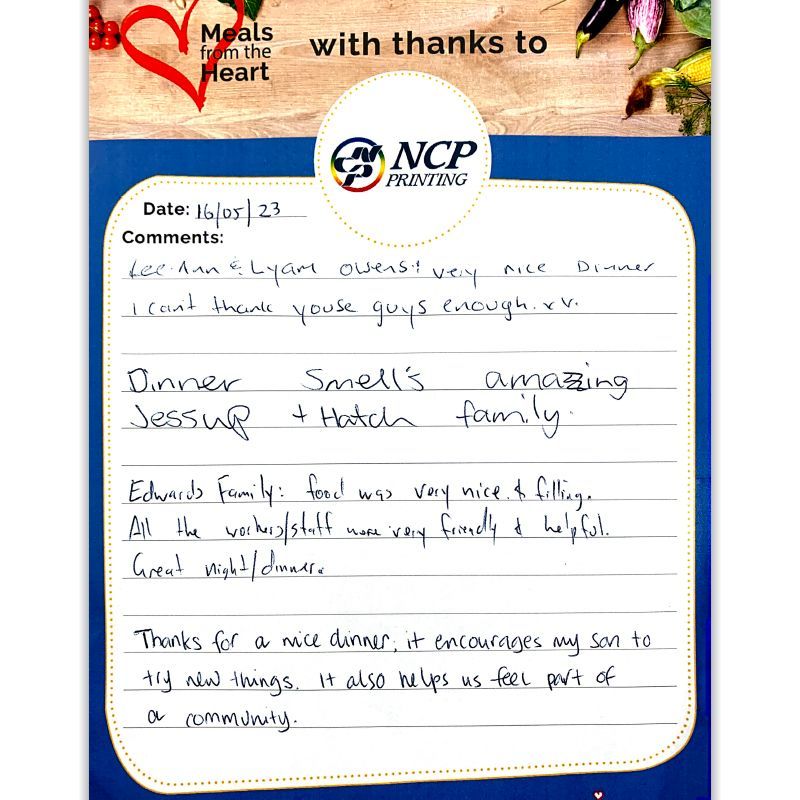 Meals
from the
Heart
with thanks to
NCP
PRINTING
Date: 16/05/23
Comments:
Lee-Ann & Lyam Owens: very nice Dinner
I cant thank youse guys enough. xx.
Dinner Smell's amazing
Jessup + Hatch family.
Edwards Family: food was very nice & filling.
All the workers/staff were very friendly & helpful.
Great night/dinner.
Thanks for a nice dinner, it encourages my son to
try new things. It also helps us feel part of
a community.